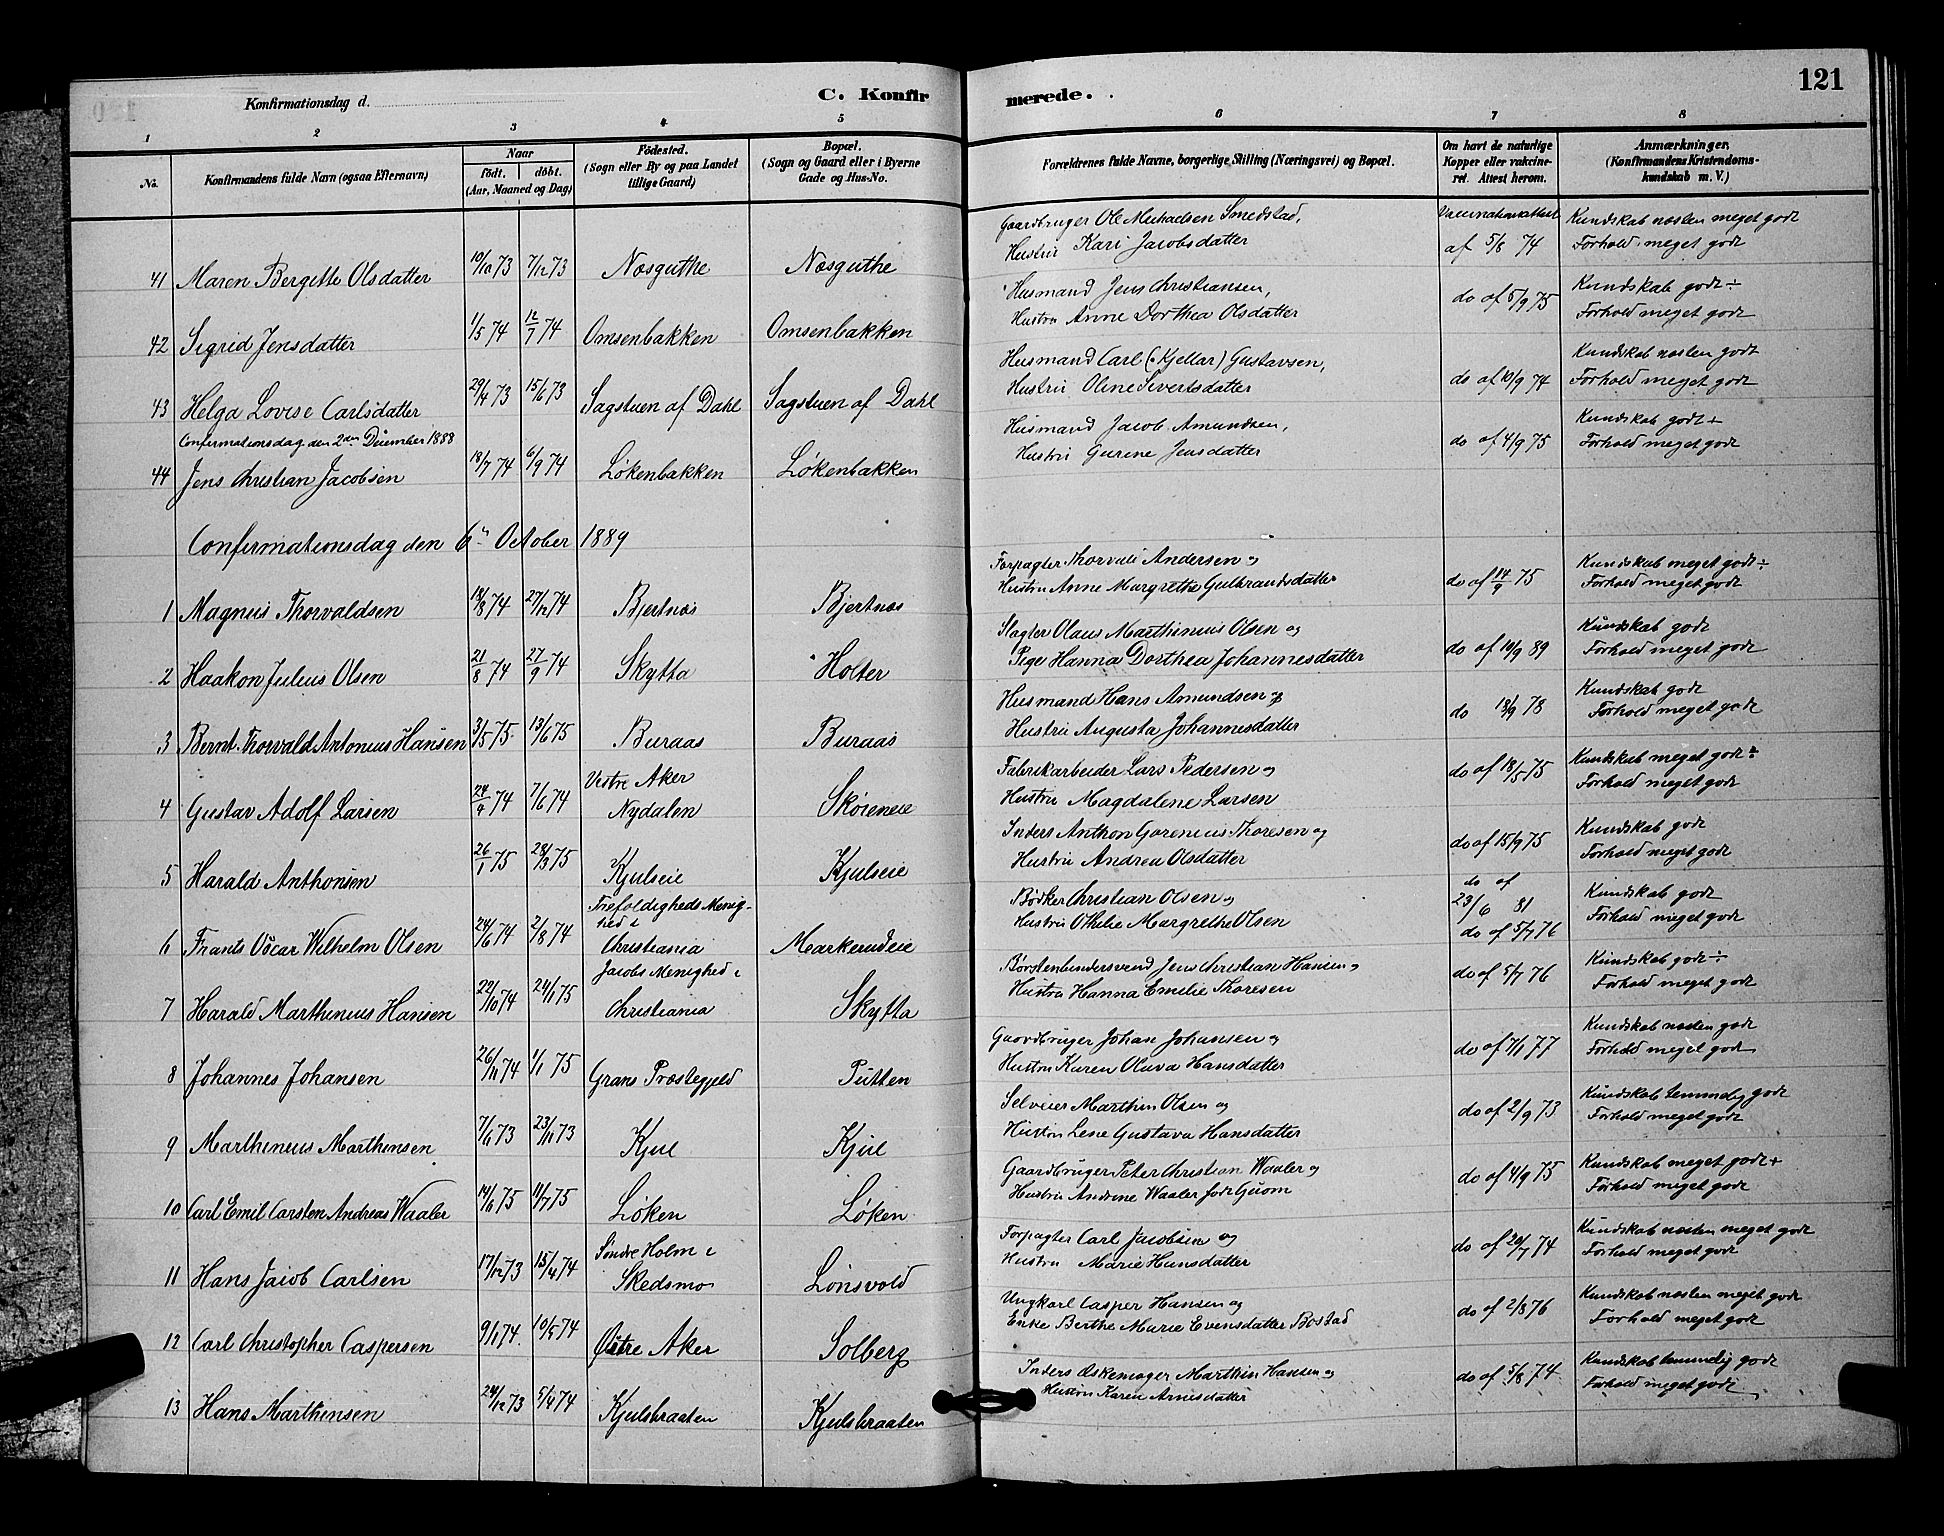 121
Konfirmationsdag d.
C. Konfirmerede.
1 2 3 4 5 6 7 8
No. Konfirmandens fulde Navn (ogsaa Efternavn) Naar födt. döbt. (Aar, Maaned og Dag) Födested. (Sogn eller By og paa Landet tillige Gaard) Bopæl. (Sogn og Gaard eller i Byerne Gade og Hus-No.) Forældrenes fulde Navne, borgerlige Stilling (Næringsvei) og Bopæl. Om havt de naturlige Kopper eller vakcineret. Attest herom. Anmærkninger, (Konfirmandens Kristendomskundskab m. V.)
Gaardbruger Ole Michaelsen Smedstad, Vaccinationsattest Kundskab næsten meget godt
41 Maren Bergitte Olsdatter 10/10 73 7/12 73 Næsguthe Næsguthe Hustru Kari Jacobsdatter af 5/8 74 Forhold meget godt
Husmand Jens Christiansen, Kundskab godt ÷
42 Sigrid Jensdatter 1/5 74 12/7 74 Omsenbakken Omsenbakken Hustru Anne Dorthea Olsdatter do af 5/9 75 Forhold meget godt
Husmand Carl (Kjellar) Gustavsen, Kundskab næsten godt
43 Helga Lovise Carlsdatter 29/4 73 15/6 73 Sagstuen af Dahl Sagstuen af Dahl Hustru Oline Sivertsdatter do af 10/9 74 Forhold meget godt
Confirmationsdag den 2den December 1888
Husmand Jacob Amundsen, Kundskab godt +
44 Jens Christian Jacobsen 18/7 74 6/9 74 Løkenbakken Løkenbakken Hustru Gurine Jensdatter do af 4/9 75 Forhold meget godt
Confirmationsdag den 6te October 1889
Forpagter Thorvald Andersen og Kundskab meget godt ÷
1 Magnus Thorvaldsen 18/8 74 27/12 74 Bjertnæs Bjertnæs Hustru Anne Margrethe Gulbrandsdatter do af 14/9 75 Forhold meget godt
Slagter Olaus Marthinius Olsen og Kundskab godt
2 Haakon Julius Olsen 21/8 74 27/9 74 Skytta Holter Pige Hanna Dorthea Johannesdatter do af 10/9 89 Forhold meget godt
Husmand Hans Amundsen og Kundskab godt
3 Bernt Thorvald Antonius Hansen 3/5 75 13/6 75 Buraas Buraas Hustru Augusta Johannesdatter do 18/9 78 Forhold meget godt
Vestre Aker Fabrikarbeider Lars Pedersen og Kundskab meget godt ÷
4 Gustav Adolf Larsen 24/4 74 7/6 74 Nydalen Skøieneie Hustru Magdalene Larsen do af 18/5 75 Forhold meget godt
Inders Anthon Gorenius Thoresen og Kundskab godt
5 Harald Anthonsen 26/1 75 28/3 75 Kjulseie Kjulseie Hustru Andrea Olsdatter do af 15/9 75 Forhold meget godt
Trefoldigheds Menighed i Bødker Christian Olsen og do af 23/6 81 Kundskab godt
6 Frants Oscar Wilhelm Olsen 24/6 74 2/8 74 Christiania Markerudeie Hustru Othilie Margrethe Olsen do af 5/7 76 Forhold meget godt
Jacobs Menighed i Børstenbindersvend Jens Christian Hansen og Kundskab godt ÷
7 Harald Marthinius Hansen 22/10 74 24/1 75 Christiania Skytta Hustru Hanna Emilie Thoresen do af 5/7 76 Forhold meget godt
Gaardbruger Johan Johansen og Kundskab næsten godt
8 Johannes Johansen 26/11 74 1/1 75 Grans Præstegjeld Putten Hustru Karen Olava Hansdatter do af 7/1 77 Forhold meget godt
Selveier Marthin Olsen og Kundskab temmelig godt
9 Marthinius Marthinsen 7/6 73 23/11 73 Kjul Kjul Hustru Lene Gustava Hansdatter do af 2/9 73 Forhold meget godt
Gaardbruger Peter Christian Waaler og Kundskab meget godt +
10 Carl Emil Carsten Andreas Waaler 14/6 75 11/7 75 Løken Løken Hustru Andrine Waaler født Guom do af 4/9 75 Forhold meget godt
Søndre Holm i Forpagter Carl Jacobsen og Kundskab næsten meget godt
11 Hans Jacob Carlsen 17/12 73 15/4 74 Skedsmo Lønsvold Hustru Marie Hansdatter do af 20/7 74 Forhold meget godt
Ungkarl Casper Hansen og Kundskab næsten meget godt
12 Carl Christopher Caspersen 9/1 74 10/5 74 Østre Aker Solberg Enke Berthe Marie Evensdatter Bostad do af 2/8 76 Forhold meget godt
Inders Æskemager Marthin Hansen og Kundskab temmelig godt
13 Hans Marthinsen 24/12 73 5/4 74 Kjulsbraaten Kjulsbraaten Hustru Karen Arnesdatter do af 5/8 74 Forhold meget godt